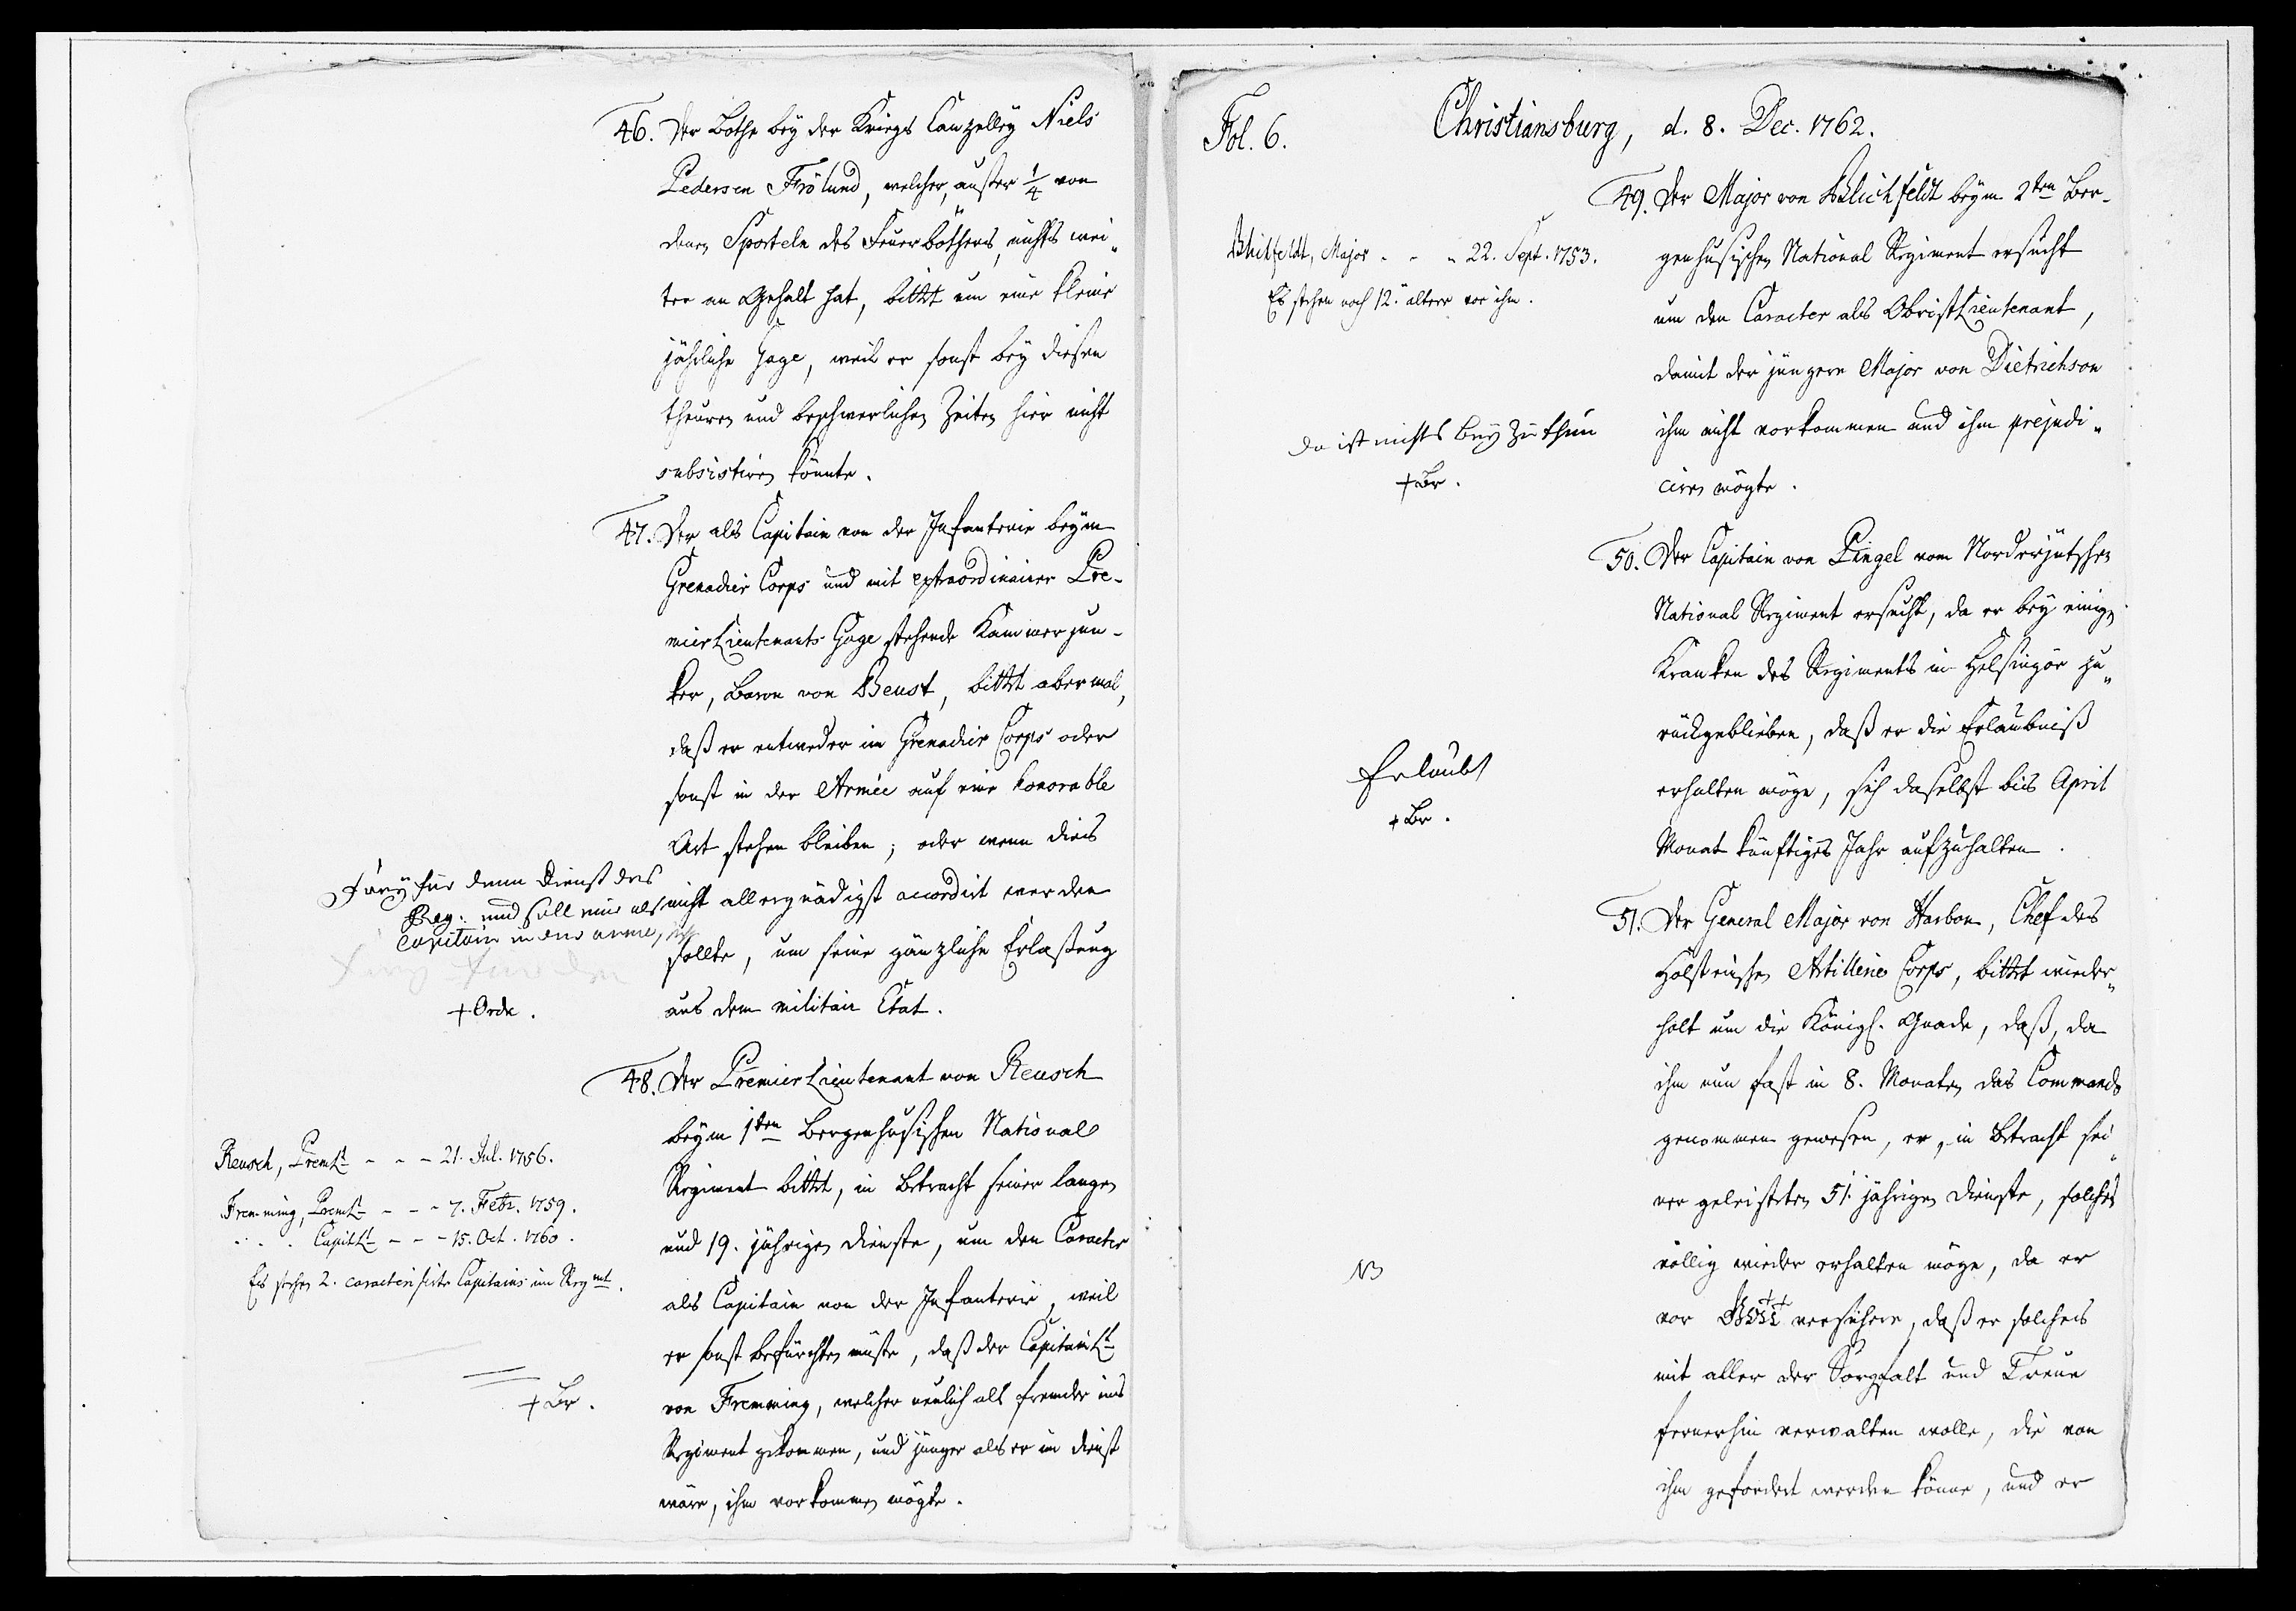 46. Der Bothe bey der Kriegs Canzelley Niels
Pedersen Frölund, welcher, außer 1/4 von
denen Sporteln des Feuerböthers, nichts wei„
ter an Gehalt hat, bittet um eine kleine
jährliche Gage, weil er sonst bey diesen
theuren und beschwerlichen Zeiten hier nicht
subsistiren könnte.
47. Der als Capitain von der Infanterie beym
Grenadier Corps und mit extraordinairer Pre-
mierLieutenants Gage stehende Kammerjun-
ker, Baron von Beust, bittet abermal,
daß er entweder im Grenadier Corps oder
sonst in der Armée auf eine honorable
Art stehen bleiben; oder wenn dies
nicht allergnädigst accordirt werden
sollte, um seine gänzliche Erlaßung
aus dem militair Etat.
für denn Dienst des
Reg: und soll nur als
Capitain in der armé,
+ Ordr.
48. Der PremierLieutenant von Reusch
beym 1ten Bergenhusischen National
Regiment bittet, in Betracht seiner langen
und 19. jährigen Dienste, um den Caracter
als Capitain von der Infanterie, weil
er sonst befürchten müste, daß der CapitainLt
von Fremming, welcher neulich als fremder ins
Regiment gekommen, und jünger als er im Dienst
wäre, ihm vorkommen mögte.
Reusch, PremLt - - - 21. Jul. 1756.
Fremming, PremLt - - - 7. Febr. 1759.
. . . CapitLt - - - 15. Oct. 1760.
Es stehen 2. caracterisirte Capitains im Regmt.
+ Br.
Fol. 6.
Christiansburg, d. 8. Dec. 1762.
49. Der Major von Blichfeldt beym 2ten Ber-
genhusischen National Regiment ersucht
um den Caracter als ObristLieutenant,
damit der jüngere Major von Dietrichson
ihm nicht vorkommen und ihm prejudi„
ciren mögte.
Blichfeldt, Major - - - 22. Sept. 1753.
Es stehen noch 12. ältere vor ihm.
da ist nichts bey zu thun
+ Br.
50. Der Capitain von Pingel vom Norderjütschen
National Regiment ersucht, da er bey einigen
Kranken des Regiments in Helsingör zu„
rückgeblieben, daß er die Erlaubniß
erhalten möge, sich daselbst bis April
Monat künftiges Jahr aufzuhalten.
Erlaubt
+ Br.
51. Der General Major von Harboe, Chef des
Holsteinschen Artillerie Corps, bittet wieder„
holt um die Königl. Gnade, daß, da
ihm nun fast in 8. Monaten das Commando
genommen gewesen, er, in Betracht sei„
ner geleisteten 51. jährigen Dienste, solches
völlig wieder erhalten möge, da er
vor versichere, daß er solches
mit aller der Sorgfalt und Treue
fernerhin verwalten wolle, die von
ihm gefordert werden könne, und er
NB